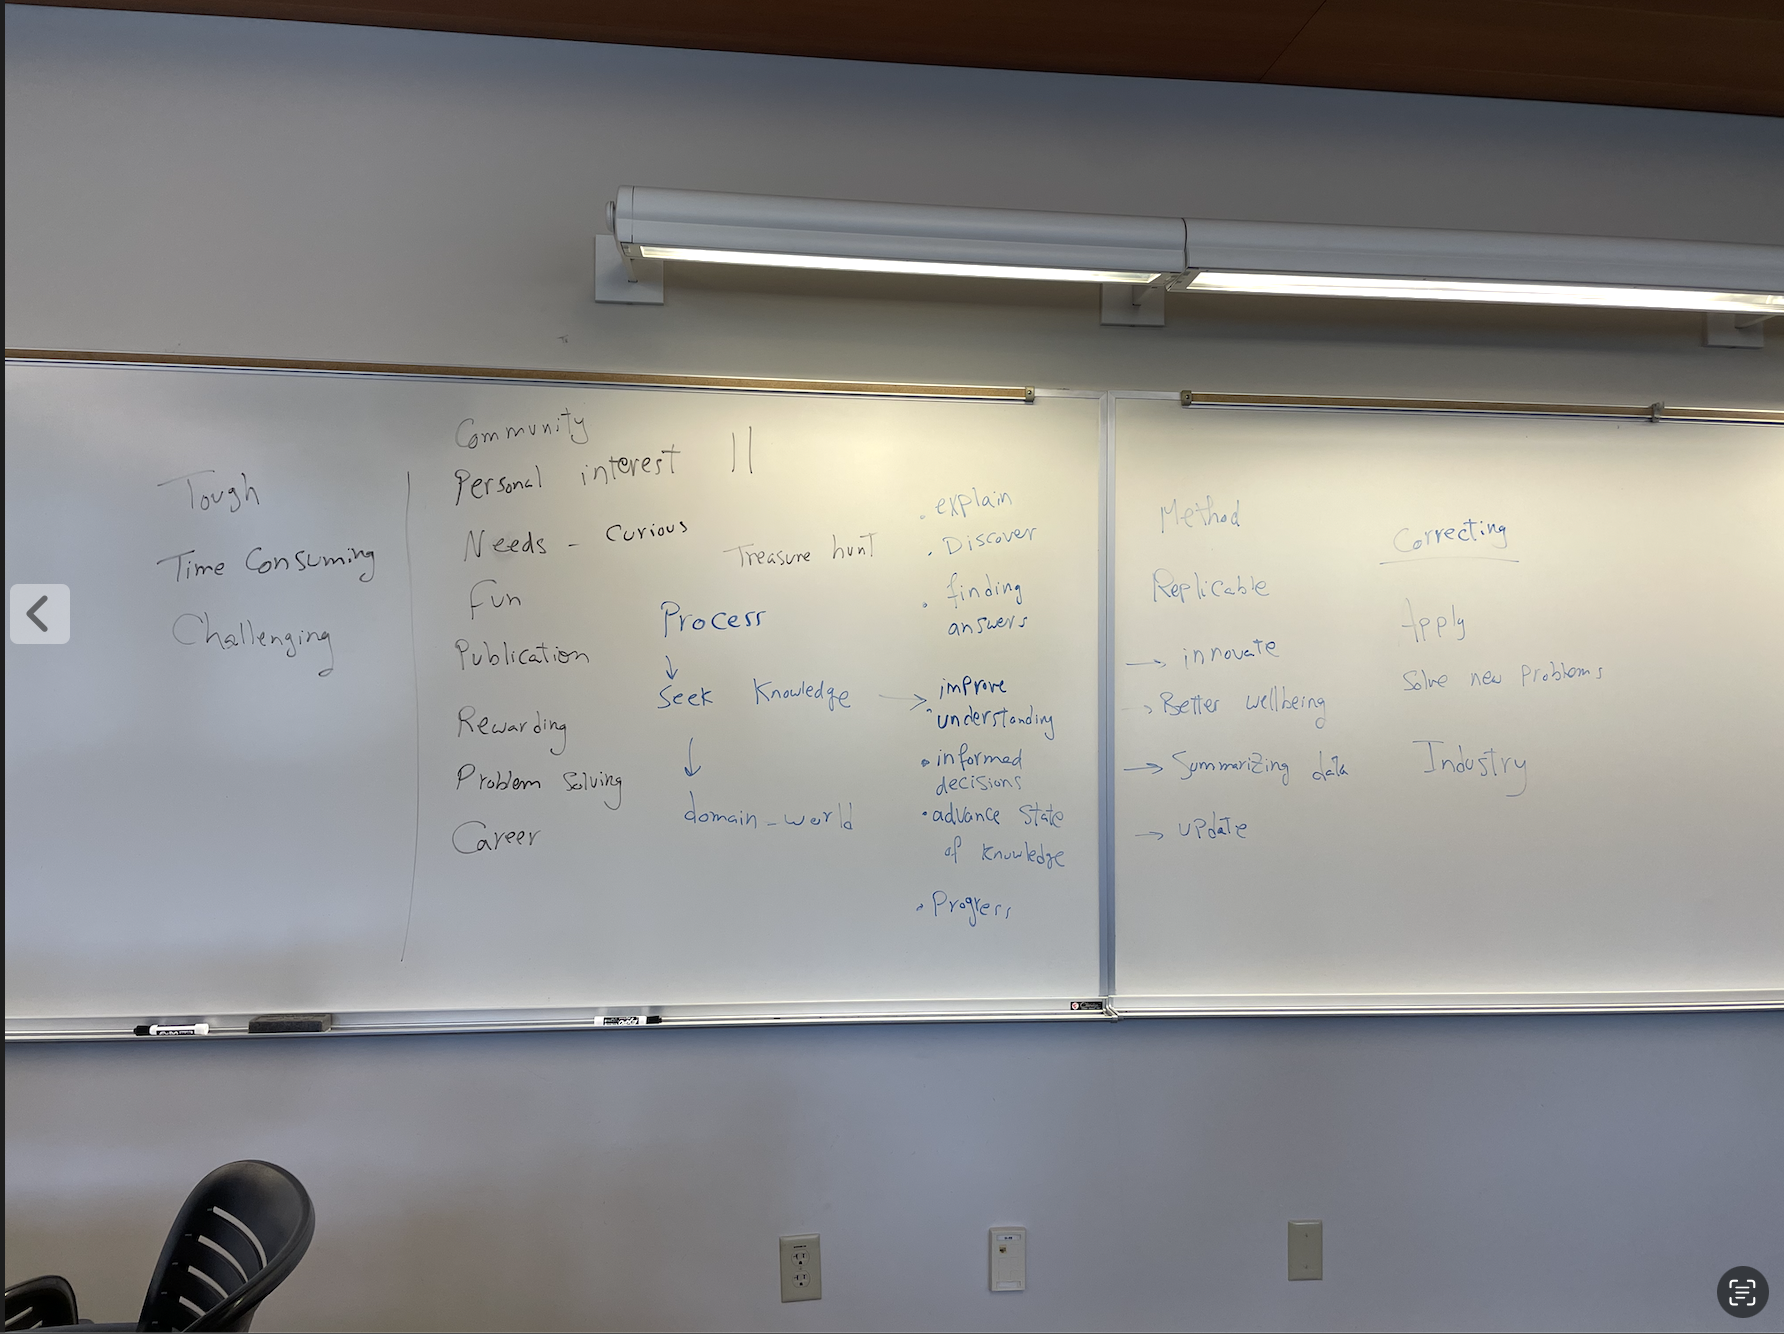 Tough
Time Consuming
Challenging
Community
Personal interest ||
Needs - Curious
Fun
Publication
Rewarding
Problem Solving
Career
Treasure hunt
Process
↓
Seek Knowledge →
↓
domain - world
. explain
. Discover
. finding
answers
improve
. understanding
. informed
decisions
. advance State
of Knowledge
. Progress
Method
Replicable
→ innovate
→ Better wellbeing
→ Summarizing data
→ update
Correcting
Apply
Solve new Problems
Industry